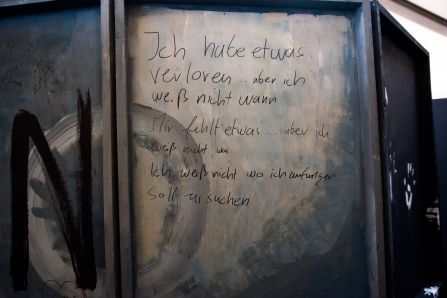 N
Ich habe etwas
verloren .. aber ich
weiß nicht wann
Mir fehlt etwas ... aber ich
weiß nicht was
Ich weiß nicht wo ich anfangen
soll zu suchen